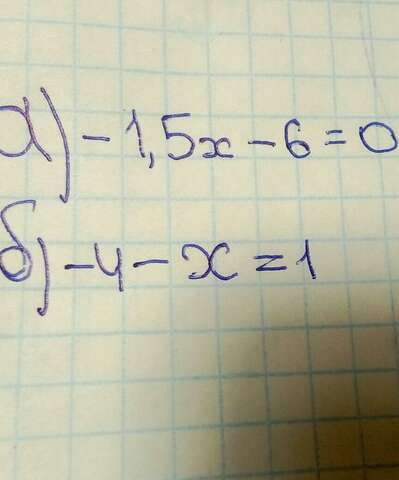 а) -1,5x - 6 = 0
б) -4 - x = 1